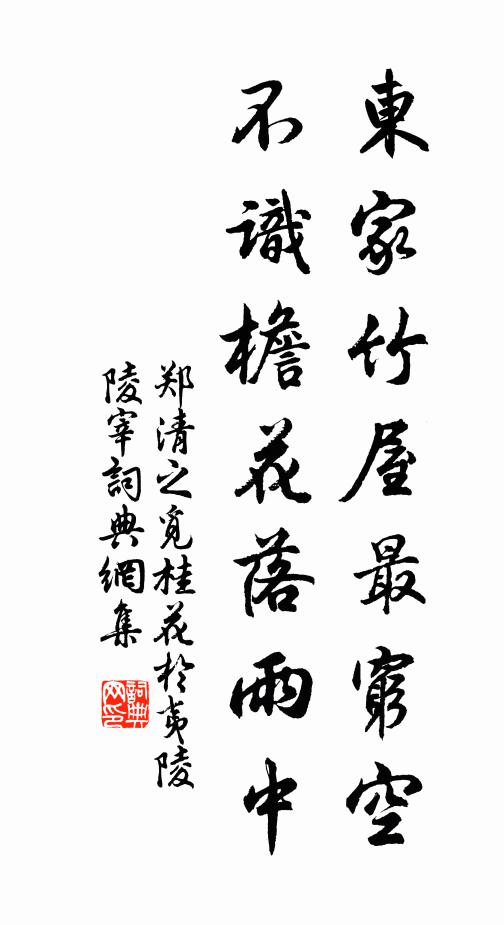 東家竹屋最窮空
不識檐花落雨中
郑清之覓桂花於夷陵
陵宰詞典網集
詞典
网印